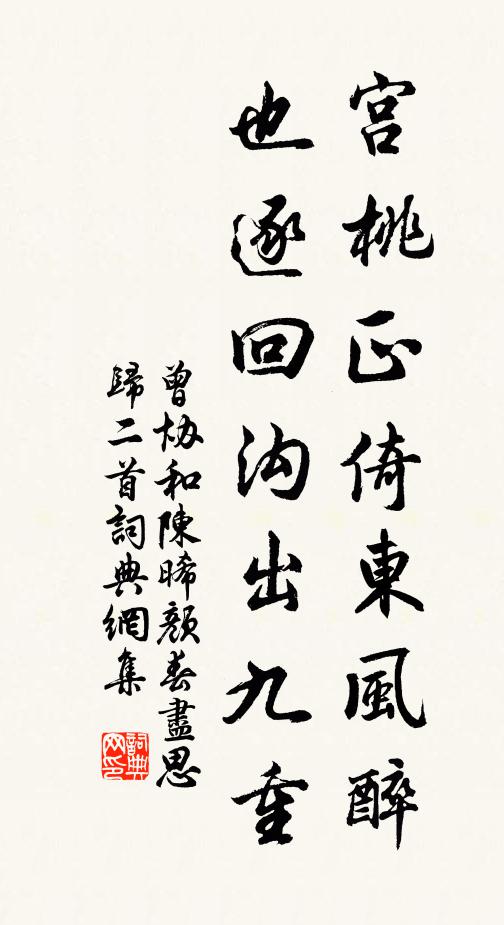 宫桃正倚東風醉
也逐回沟出九重
曾协和陳晞颜春盡思
歸二首詞典網集
詞典
网印